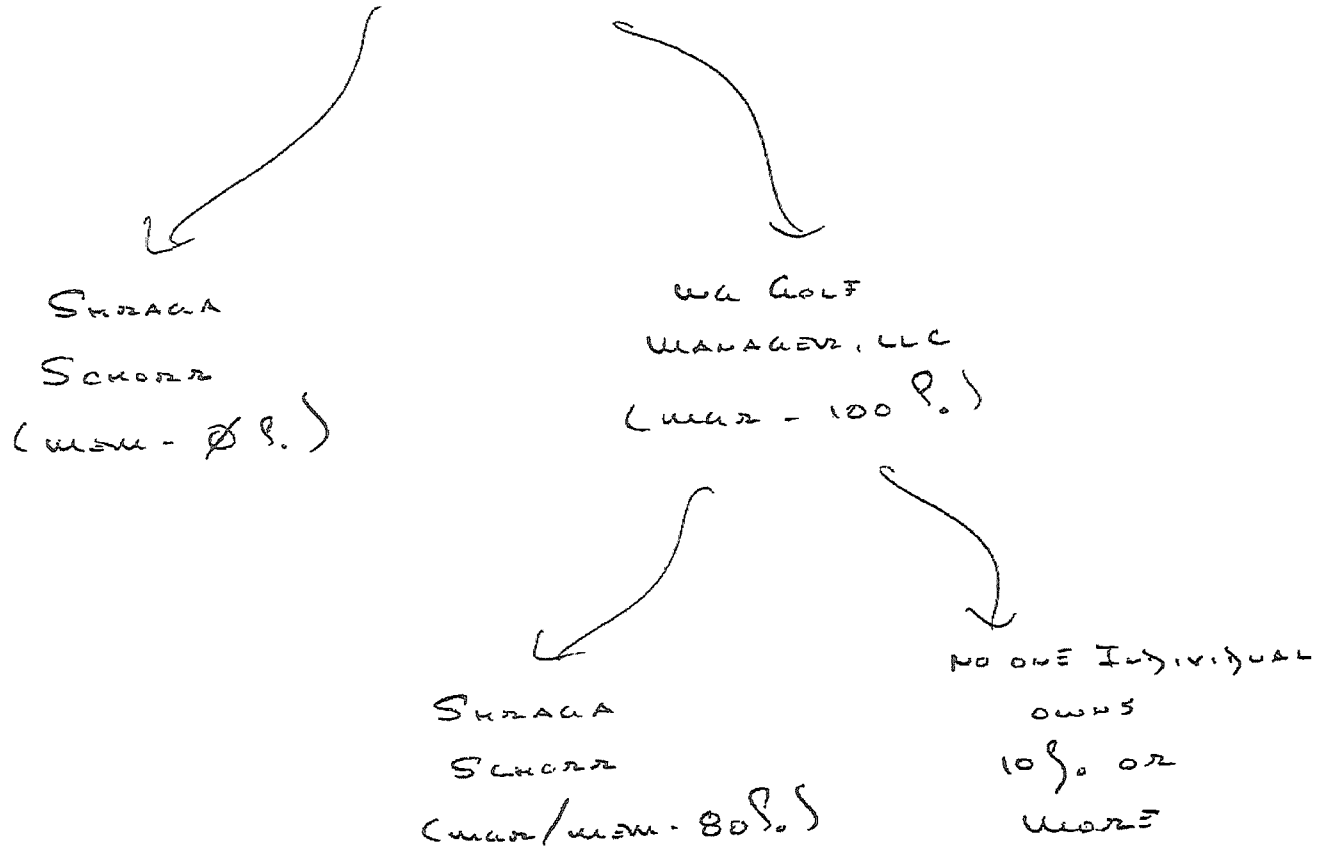 SHRAGA
SCHORR
(MEM - Ø %)
WG GOLF
MANAGER, LLC
(MGR - 100 %)
SHRAGA
SCHORR
(MGR/MEM - 80%)
NO ONE INDIVIDUAL
OWNS
10% OR
MORE